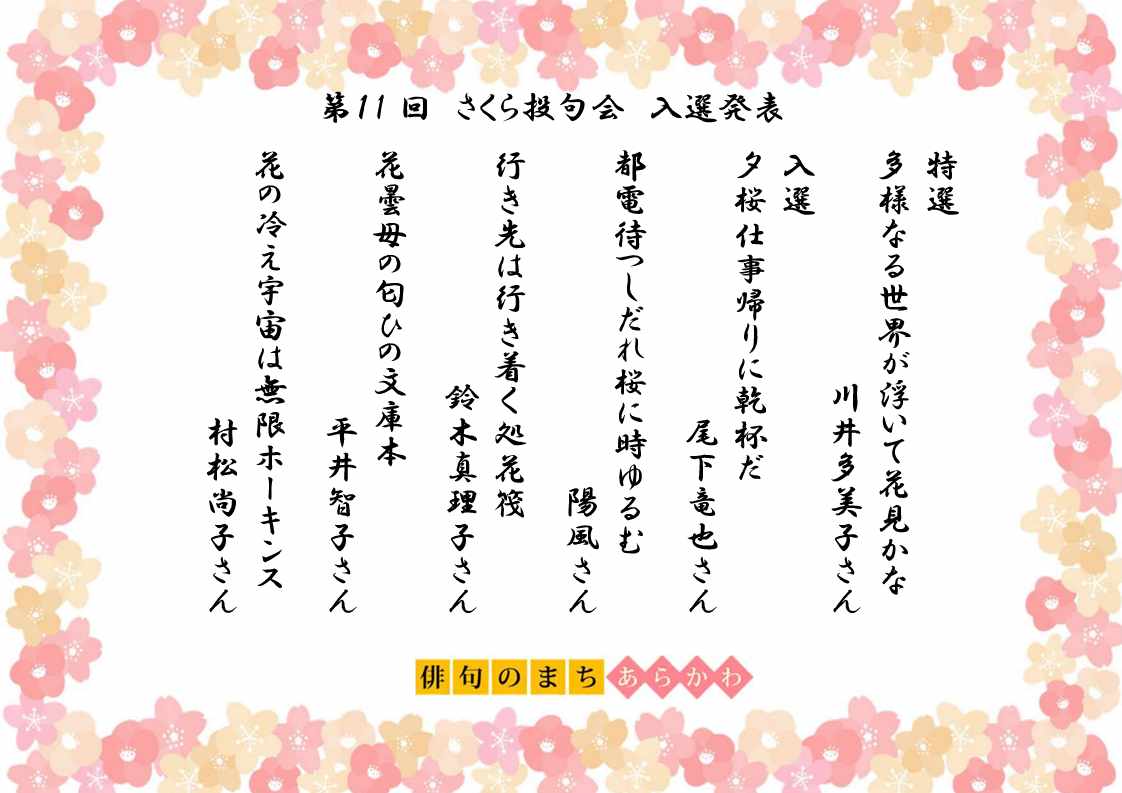 第11回 さくら投句会 入選発表
特選
多様なる世界が浮いて花見かな
川井多美子さん
入選
夕桜仕事帰りに乾杯だ
尾下竜也さん
都電待つしだれ桜に時ゆるむ
陽風さん
行き先は行き着く処花筏
鈴木真理子さん
花曇母の匂ひの文庫本
平井智子さん
花の冷え宇宙は無限ホーキンス
村松尚子さん
俳句のまちあらかわ